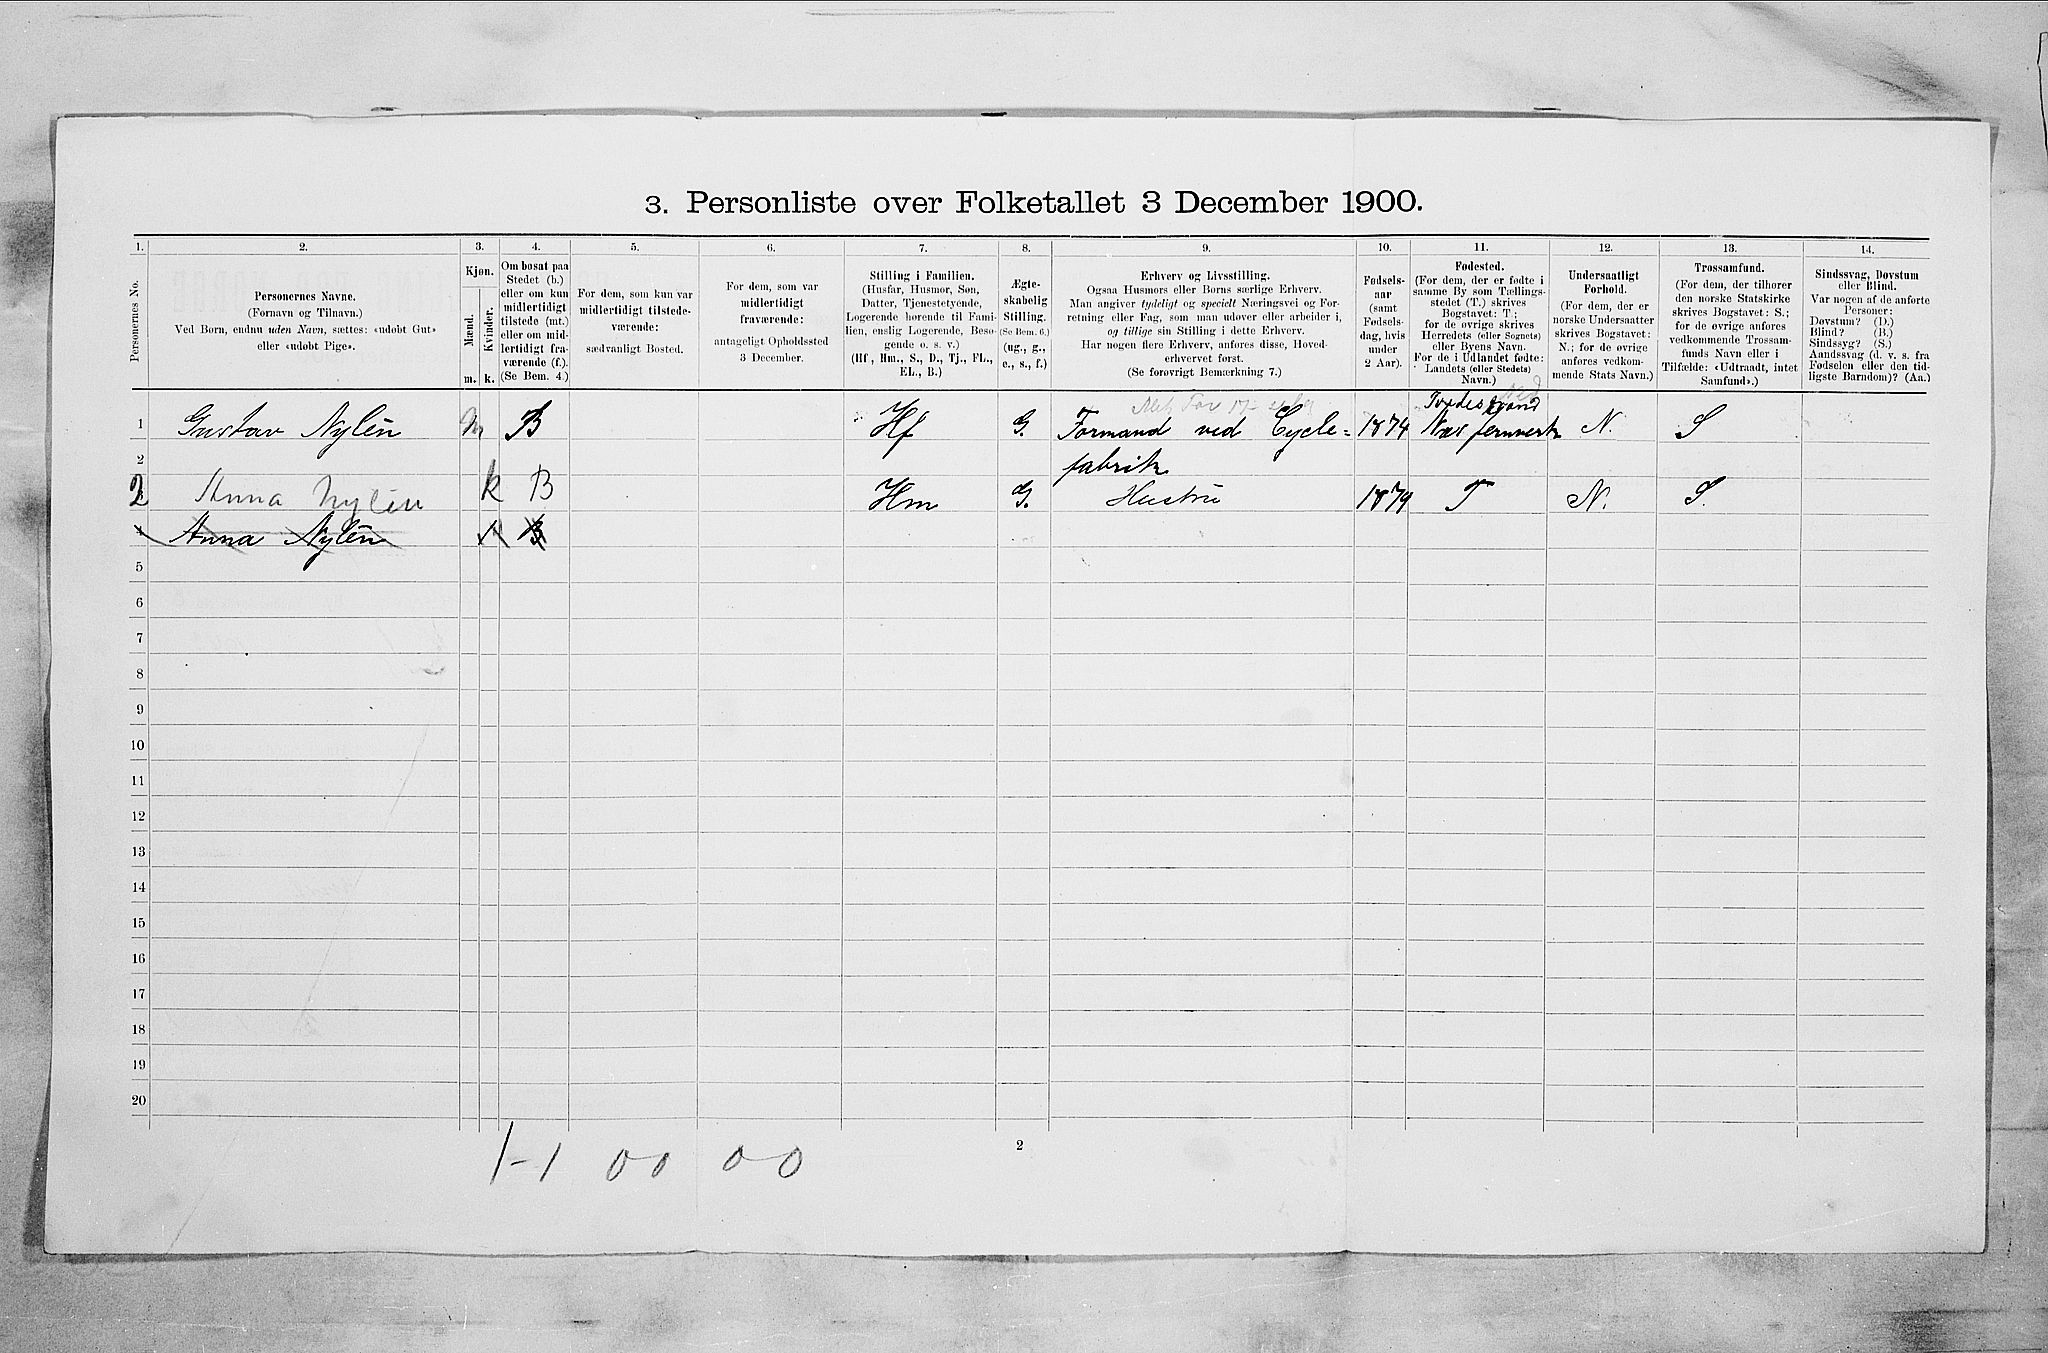 3. Personliste over Folketallet 3 December 1900.
1. 2. 3. 4. 5. 6. 7. 8. 9. 10. 11. 12. 13. 14.
Personernes No.
Personernes Navne.
(Fornavn og Tilnavn.)
Ved Børn, endnu uden Navn, sættes: «udøbt Gut»
eller «udøbt Pige».
Kjøn.
Mænd.
Kvinder.
m. k.
Om bosat paa
Stedet (b.)
eller om kun
midlertidigt
tilstede (mt.)
eller om mid-
lertidigt fra-
værende (f.).
(Se Bem. 4.)
For dem, som kun var
midlertidigt tilstede-
værende:
sædvanligt Bosted.
For dem, som var
midlertidigt
fraværende:
antageligt Opholdssted
3 December.
Stilling i Familien.
(Husfar, Husmor, Søn,
Datter, Tjenestetyende,
Logerende hørende til Fami-
lien, enslig Logerende, Besø-
gende o. s. v.)
(Hf., Hm., S., D., Tj., FL.,
EL., B.)
Ægte-
skabelig
Stilling.
(Se Bem. 6.)
(ug., g.,
e., s., f.)
Erhverv og Livsstilling.
Ogsaa Husmors eller Børns særlige Erhverv.
Man angiver tydeligt og specielt Næringsvei og For-
retning eller Fag, som man udøver eller arbeider i,
og tillige sin Stilling i dette Erhverv.
Har nogen flere Erhverv, anføres disse, Hoved-
erhvervet først.
(Se forøvrigt Bemærkning 7.)
Fødsels-
aar
(samt
Fødsels-
dag, hvis
under
2 Aar).
Fødested.
(For dem, der er fødte i
samme By som Tællings-
stedet (T.) skrives
Bogstavet: T;
for de øvrige skrives
Herredets (eller Sognets)
eller Byens Navn.
For de i Udlandet fødte:
Landets (eller Stedets)
Navn.)
Undersaatligt
Forhold.
(For dem, der er
norske Undersaatter
skrives Bogstavet:
N.; for de øvrige
anføres vedkom-
mende Stats Navn.)
Trossamfund.
(For dem, der tilhører
den norske Statskirke
skrives Bogstavet: S.;
for de øvrige anføres
vedkommende Trossam-
funds Navn eller i
Tilfælde: «Udtraadt, intet
Samfund».)
Sindssvag, Døvstum
eller Blind.
Var nogen af de anførte
Personer:
Døvstum? (D.)
Blind? (B.)
Sindssyg? (S.)
Aandssvag (d. v. s. fra
Fødselen eller den tid-
ligste Barndom)? (Aa.)
Tvedestrand
1 Gustav Nylén m B Hf G. Formand ved Cycle= 1874 Næs jernverk N. S
2 fabrik
2 Anna Nylén k B Hm G. Hustru 1879 T N. S.
4 Anna Nylén k B
5
6
7
8
9
10
11
12
13
14
15
16
17
18
19
20
2
1-1 00 00